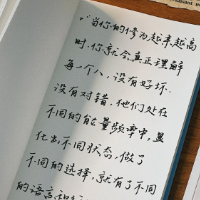 "当你的修为越来越高
时,你就会真正理解
每一个人,没有好坏
没有对错,他们处在
不同的能量频率中,显
化出不同状态,做了
不同的选择,就有了不同
的语言和